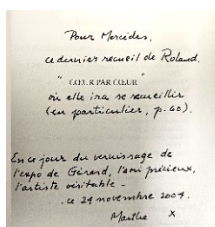 Pour Mercédès,
ce dernier recueil de Roland.
"CŒUR PAR CŒUR"
où elle ira se recueillir
(en particulier, p. 60).
En ce jour du vernissage de
l'expo de Gérard, l'ami précieux,
l'artiste véritable -
ce 29 novembre 2004.
Marthe x